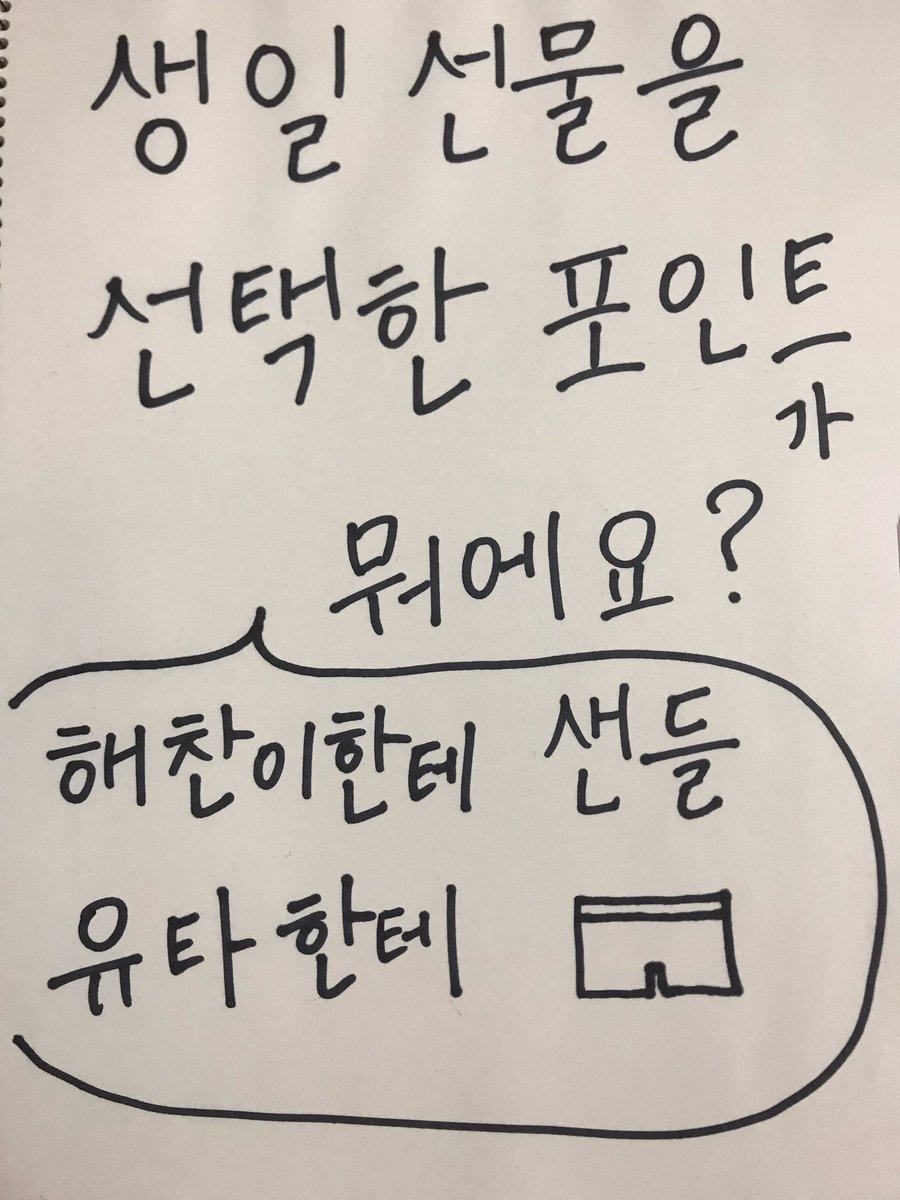 생일 선물을
선택한 포인트가
뭐에요?
해찬이한테 샌들
유타한테